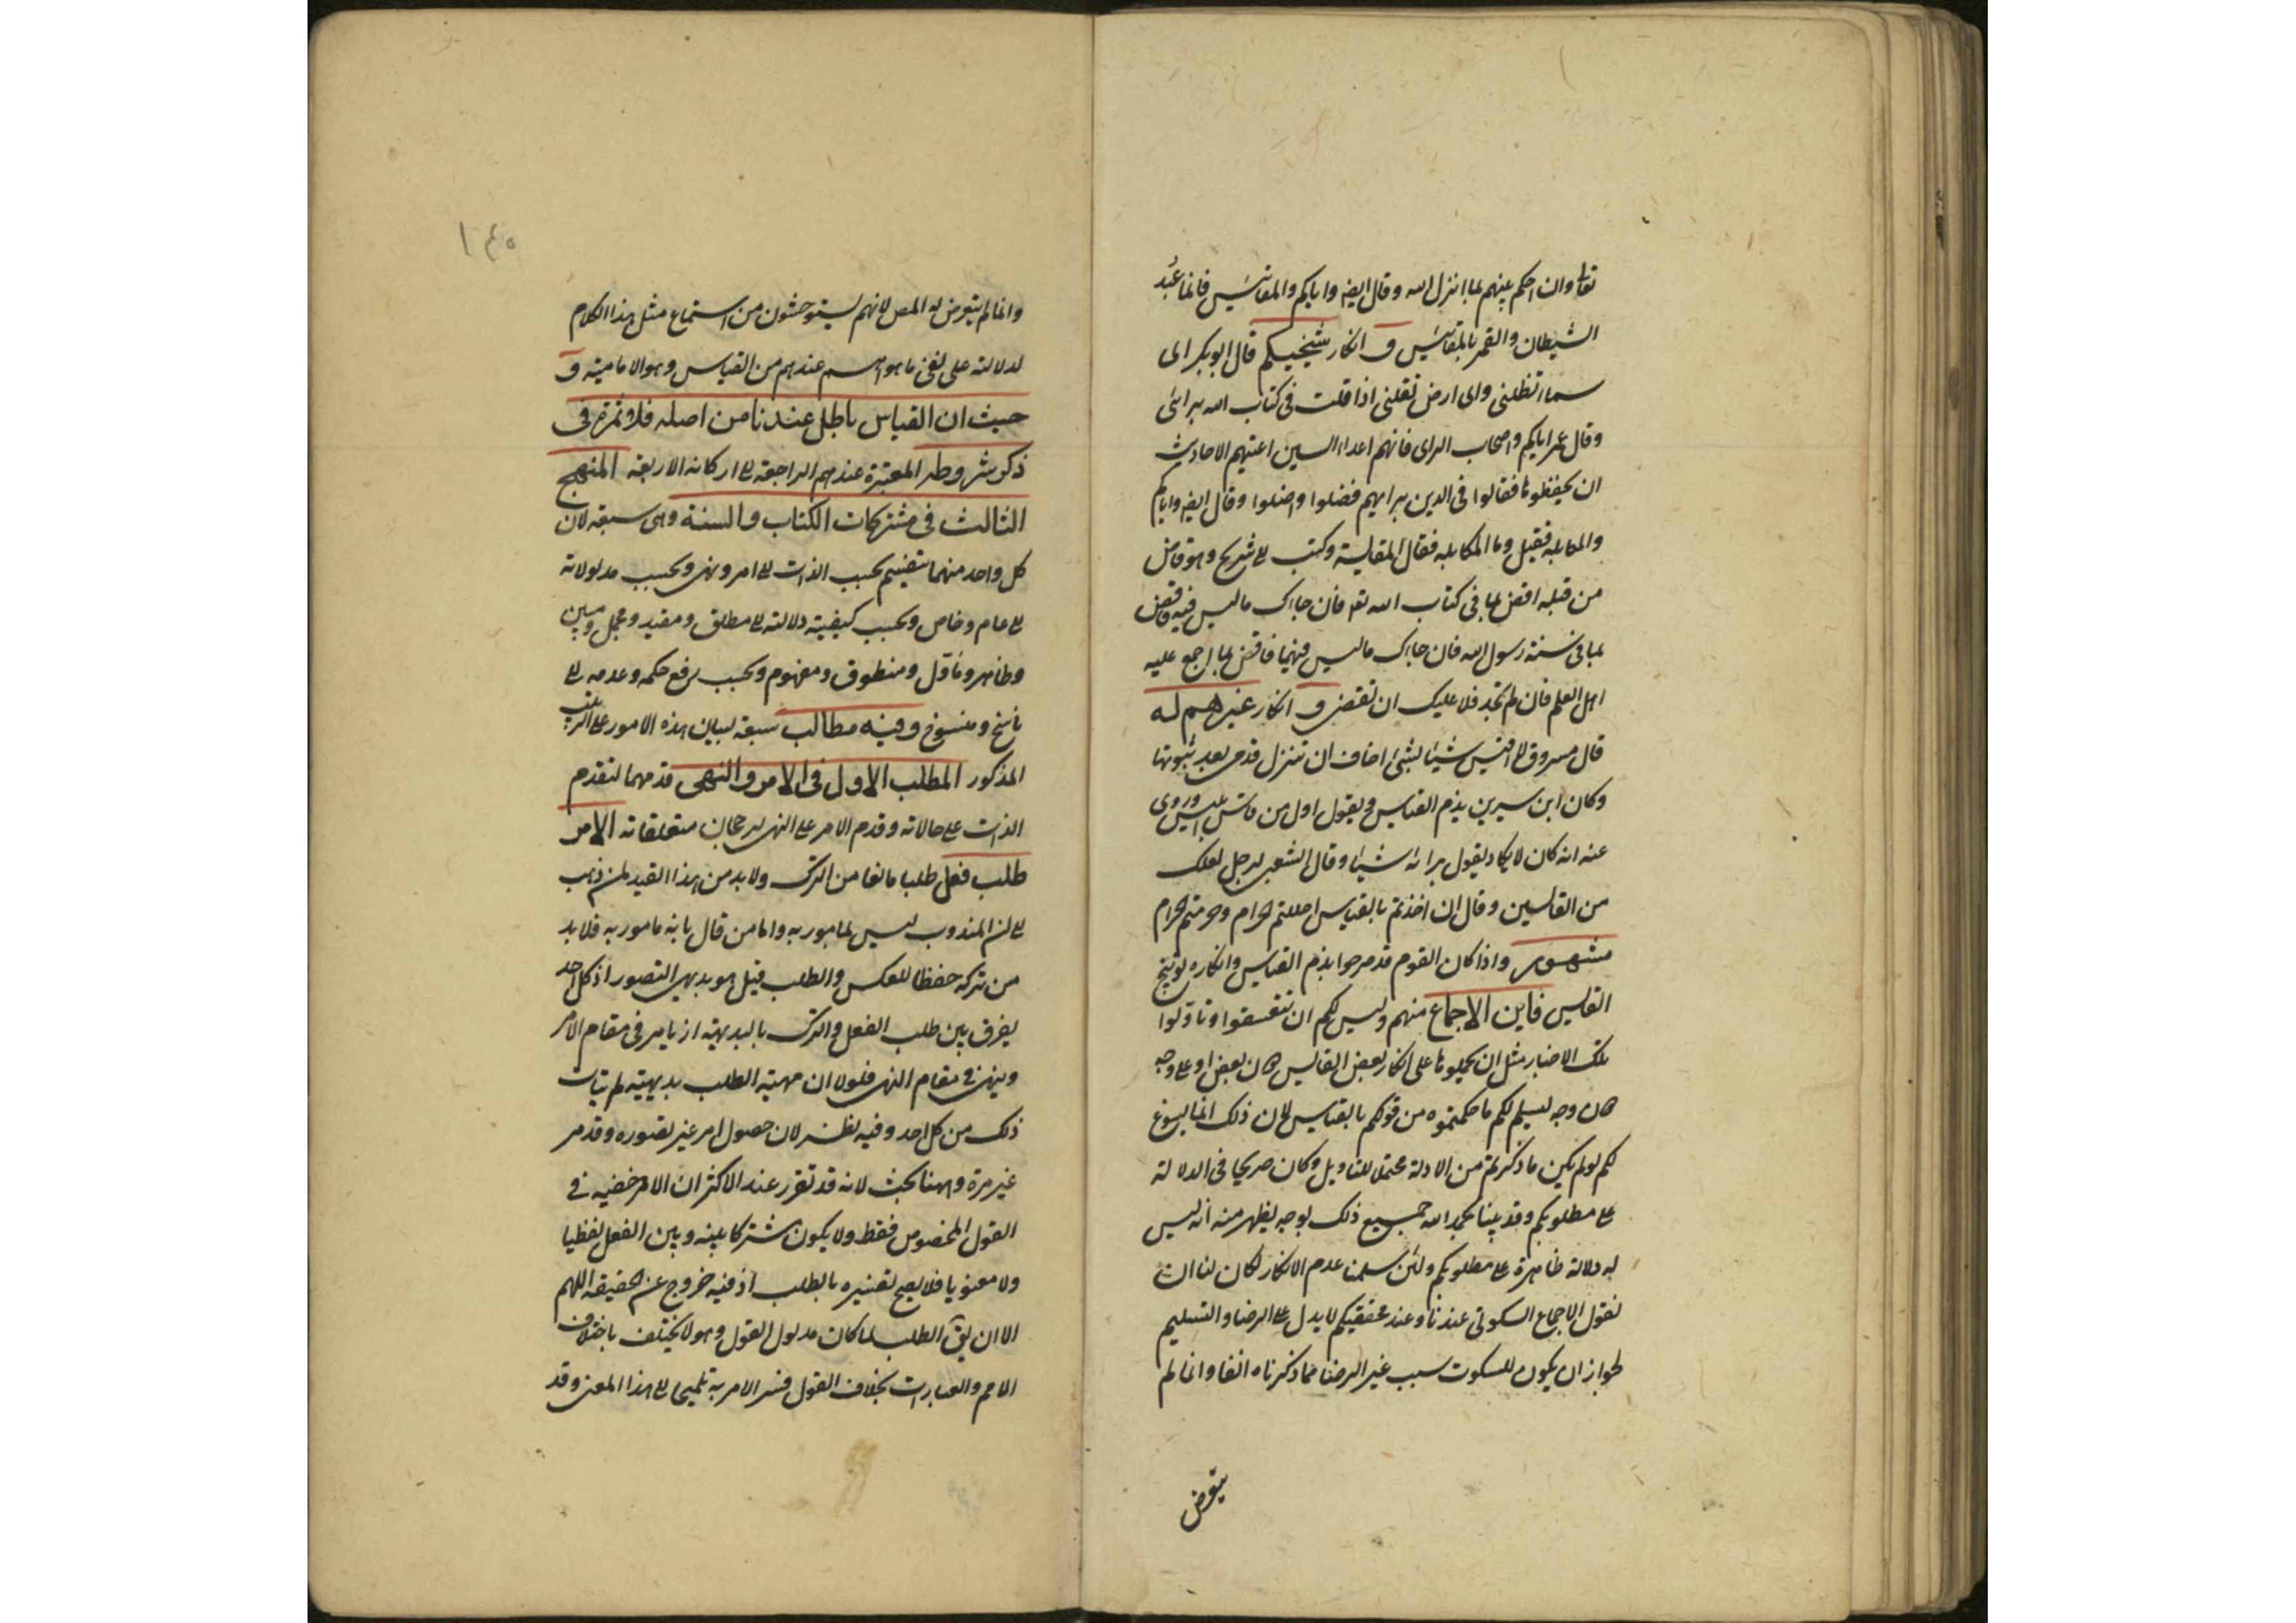 تعالى وان احكم بينهم بما انزل الله وقال ايضا واياكم والمقائيس فانما عبد
الشيطان والقمر بالمقائيس و انكار شيخيكم قال ابوبكر اى
سماء تظلنى واى ارض تقلنى اذا قلت فى كتاب الله برائى
وقال عمر اياكم واصحاب الراى فانهم اعداء السنن اعيتهم الاحاديث
ان يحفظوها فقالوا فى الدين برايهم فضلوا واضلوا وقال ايضا واياكم
والمكايلة فقيل وما المكايلة فقال المقايسة وكتب الى شريح وهو قاض
من قبله اقض بما فى كتاب الله تعه فان جاءك ما ليس فيه فاقض
بما فى سنة رسول الله فان جاءك ما ليس فيهما فاقض بما اجمع عليه
اهل العلم فان لم تجد فلا عليك ان تقضى و انكار غيرهم له
قال مسروق لا اقيس شيئا بشئ اخاف ان تنزل قدمى بعد ثبوتها
وكان ابن سيرين يذم القياس ويقول اول من قاس ابليس وروى
عنه انه كان لا يكاد يقول برائه شيئا وقال الشعبى لرجل لعلك
من القائسين وقال ان اخذتم بالقياس احللتم الحرام وحرمتم الحرام
مشهور واذا كان القوم قد صرحوا بذم القياس وانكاره وتوبيخ
القايس فاين الاجماع منهم وليس لكم ان تتعسفوا وتاولوا
تلك الاخبار مثل ان تحملوها على انكار بعض القايس دون بعض او على وجه
دون وجه ليسلم لكم ما حكمتموه من قولكم بالقياس لان ذلك انما يسوغ
لكم لو لم يكن ما ذكرتم من الادلة محتملا للتاويل وكان صريحا فى الدلالة
على مطلوبكم وقد بينا بحمد الله جميع ذلك بوجه يظهر منه انه ليس
له دلالة ظاهرة على مطلوبكم ولئن سلمنا عدم الانكار لكان لنا ان
نقول الاجماع السكوتى عندنا وعند محققيكم لا يدل على الرضا والتسليم
لجواز ان يكون للسكوت سبب غير الرضا مما ذكرناه انفا وانما لم
يتعرض
١٤٥
وانما لم يتعرض له المص لانهم يستوحشون من استماع مثل هذا الكلام
لدلالته على نفى ما هو اهم عندهم من القياس وهو الامامية و
حيث ان القياس باطل عندنا من اصله فلا ثمرة فى
ذكر شروطه المعتبرة عندهم الراجعة الى اركانه الاربعة المنهج
الثالث فى مشتركات الكتاب والسنة وهى سبعة لان
كل واحد منهما ينقسم بحسب الذات الى امر ونهى وبحسب مدلولاته
الى عام وخاص وبحسب كيفية دلالته الى مطلق ومقيد ومجمل ومبين
وظاهر وماول ومنطوق ومفهوم وبحسب رفع حكمه وعدمه الى
ناسخ ومنسوخ وفيه مطالب سبعة لبيان هذه الامور على الترتيب
المذكور المطلب الاول فى الامر والنهى قدمهما لتقدم
الذات على حالاته وقدم الامر على النهى لرجحان متعلقاته الامر
طلب فعل طلبا مانعا من الترك ولا بد من هذا القيد لمن ذهب
الى ان المندوب ليس بمامور به واما من قال بانه مامور به فلا بد
من تركه حفظا للعكس والطلب قيل هو بديهى التصور اذ كل احد
يفرق بين طلب الفعل والترك بالبديهة اذ يامر فى مقام الامر
وينهى فى مقام النهى فلولا ان مهية الطلب بديهية لم يتات
ذلك من كل احد وفيه نظر لان حصول امر غير تصوره وقد مر
غير مرة وههنا بحث لانه قد تقرر عند الاكثر ان الامر حقيقة فى
القول المخصوص فقط ولا يكون مشتركا بينه وبين الفعل لفظيا
ولا معنويا فلا يصح تفسيره بالطلب اذ فيه خروج عن الحقيقة اللهم
الا ان يق الطلب لما كان مدلول القول وهو لا يختلف باختلاف
الامم والعبارات بخلاف القول فسر الامر به تلميحا الى هذا المعنى وقد